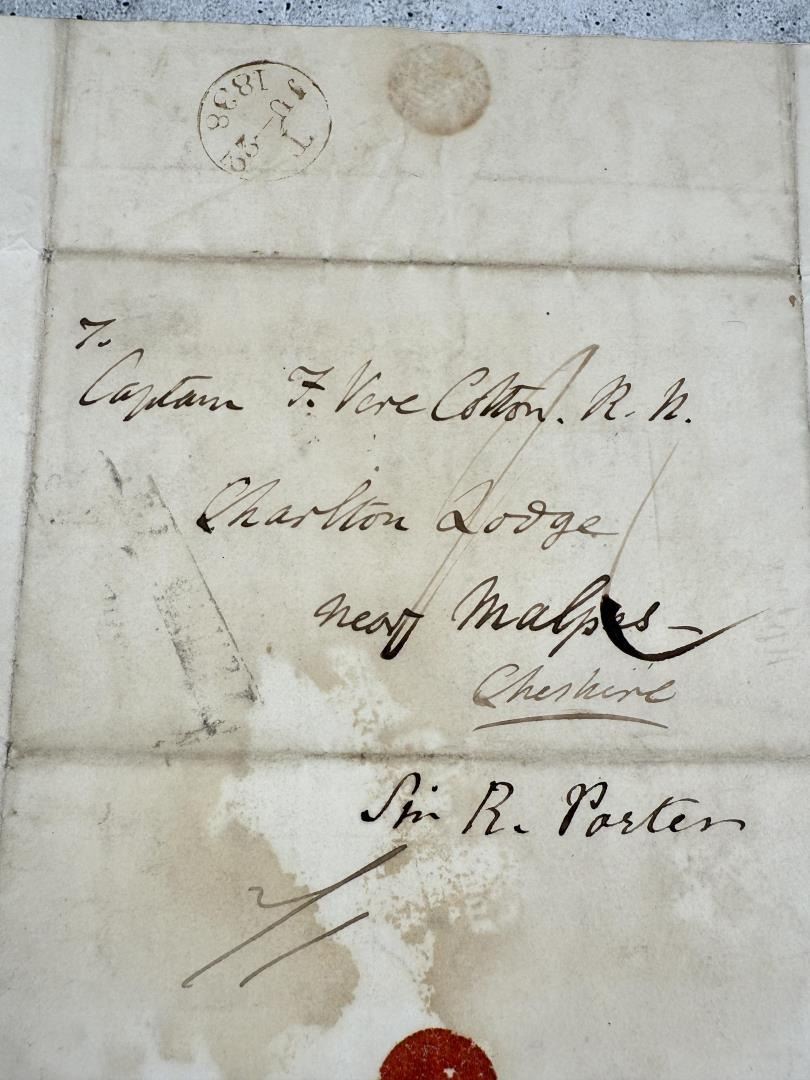 T
JU-22
1838
To
Captain F. Vere Cotton. R. N.
Charlton Lodge
near Malpas-
Cheshire
Sir R. Porter